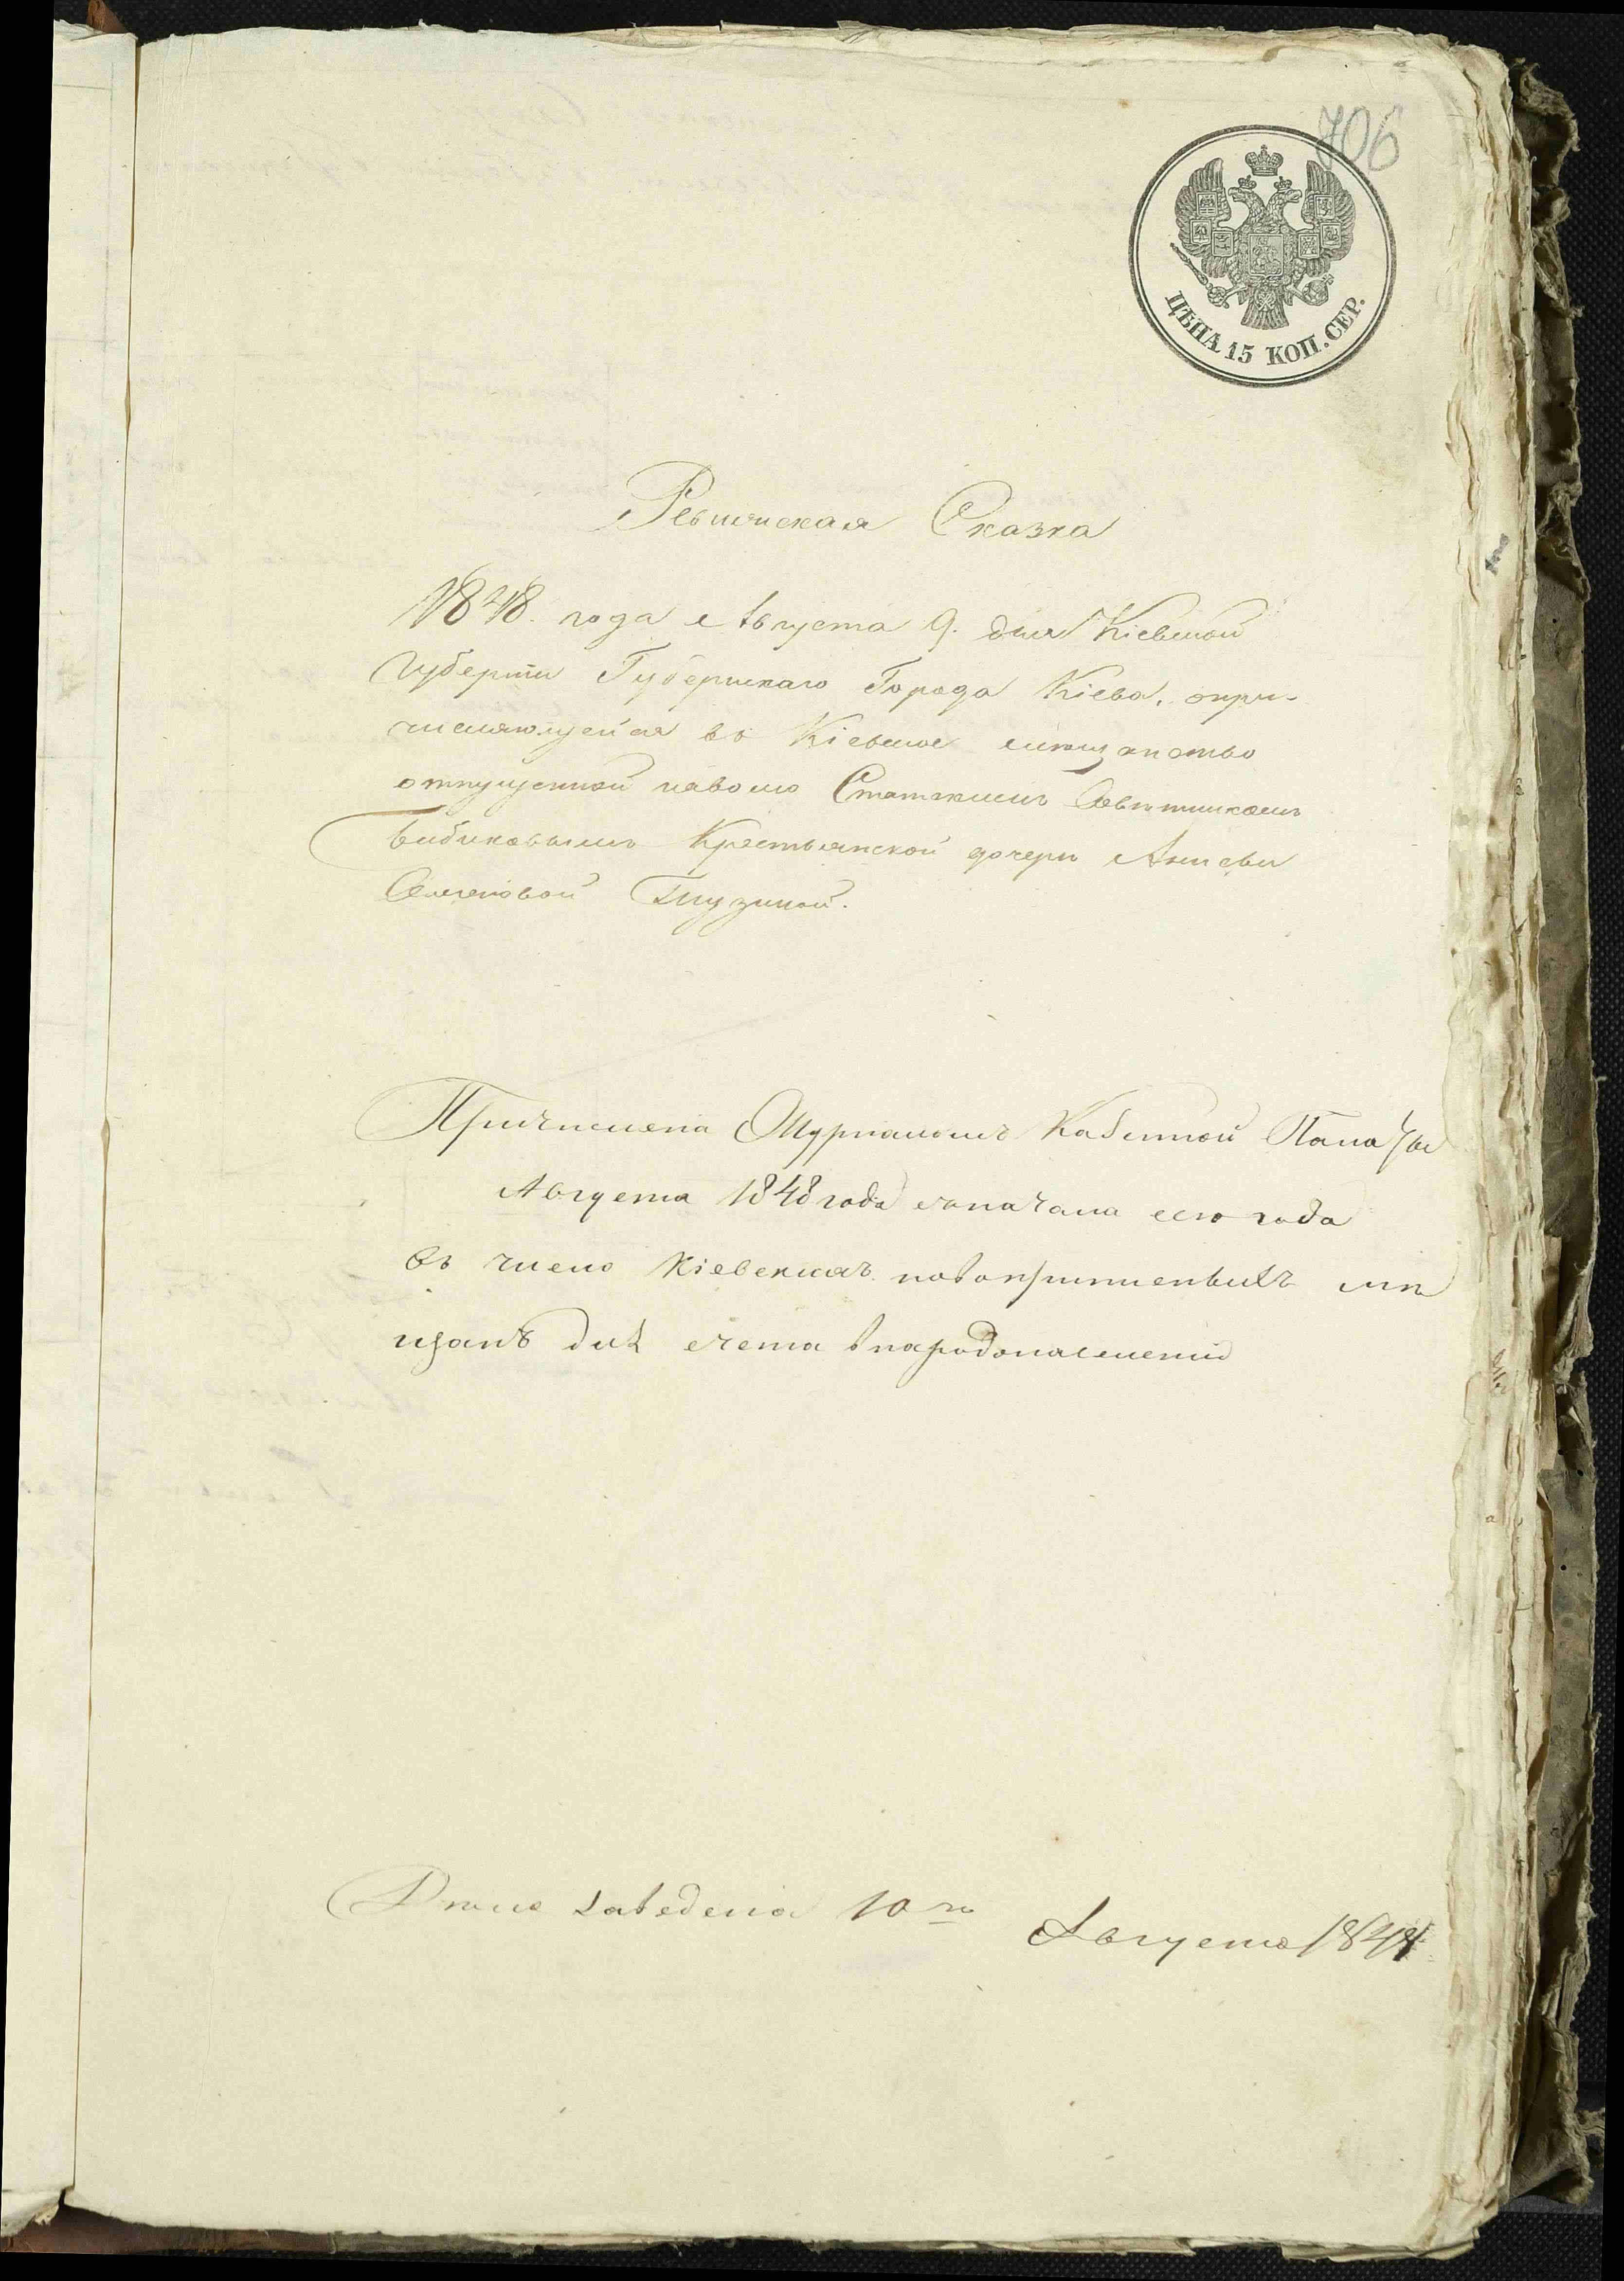 706
ЦѢНА 15 КОП. СЕР.
Ревижская Сказка
1848. года Августа 9. дня Кіевской
Губерніи Губернскаго Города Кіева, о при-
числяющейся въ Кіевское мѣщанство
отпущенной наволю Статскимъ Совѣтникомъ
Бибиковымъ Крестьянской дочери
Семеновой
Причислена Журналомъ Казенной Палаты
Августа 1848 года сначала сего года
въ число Кіевскихъ мѣ
щанъ для счета внародонаселеніи
10го
Августа 1848